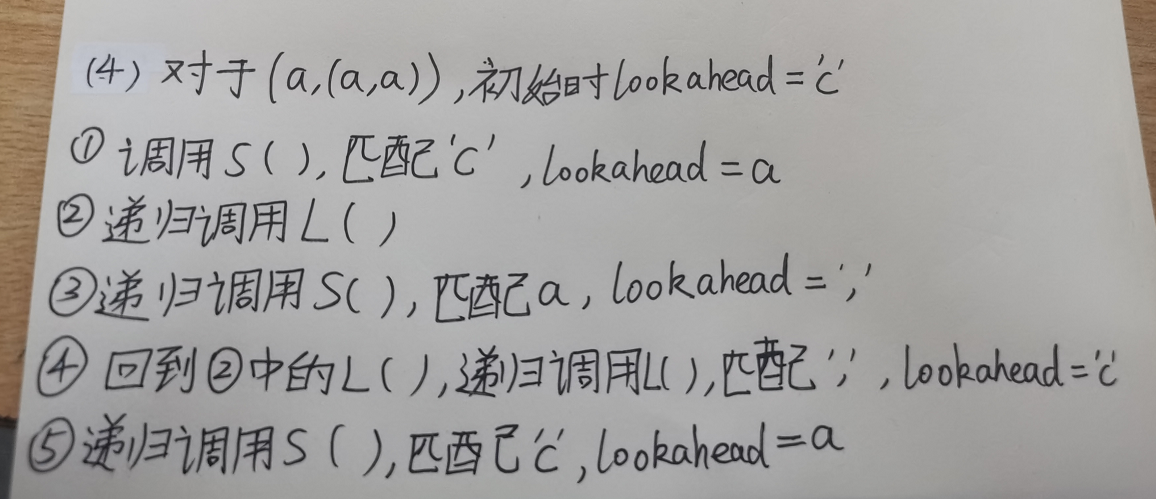 (4) 对于(a,(a,a)),初始时lookahead='('
① 调用S( ),匹配'(',lookahead=a
② 递归调用L( )
③递归调用S( ),匹配a,lookahead=','
④ 回到②中的L( ),递归调用L( ),匹配',',lookahead='('
⑤递归调用S( ),匹配'(',lookahead=a